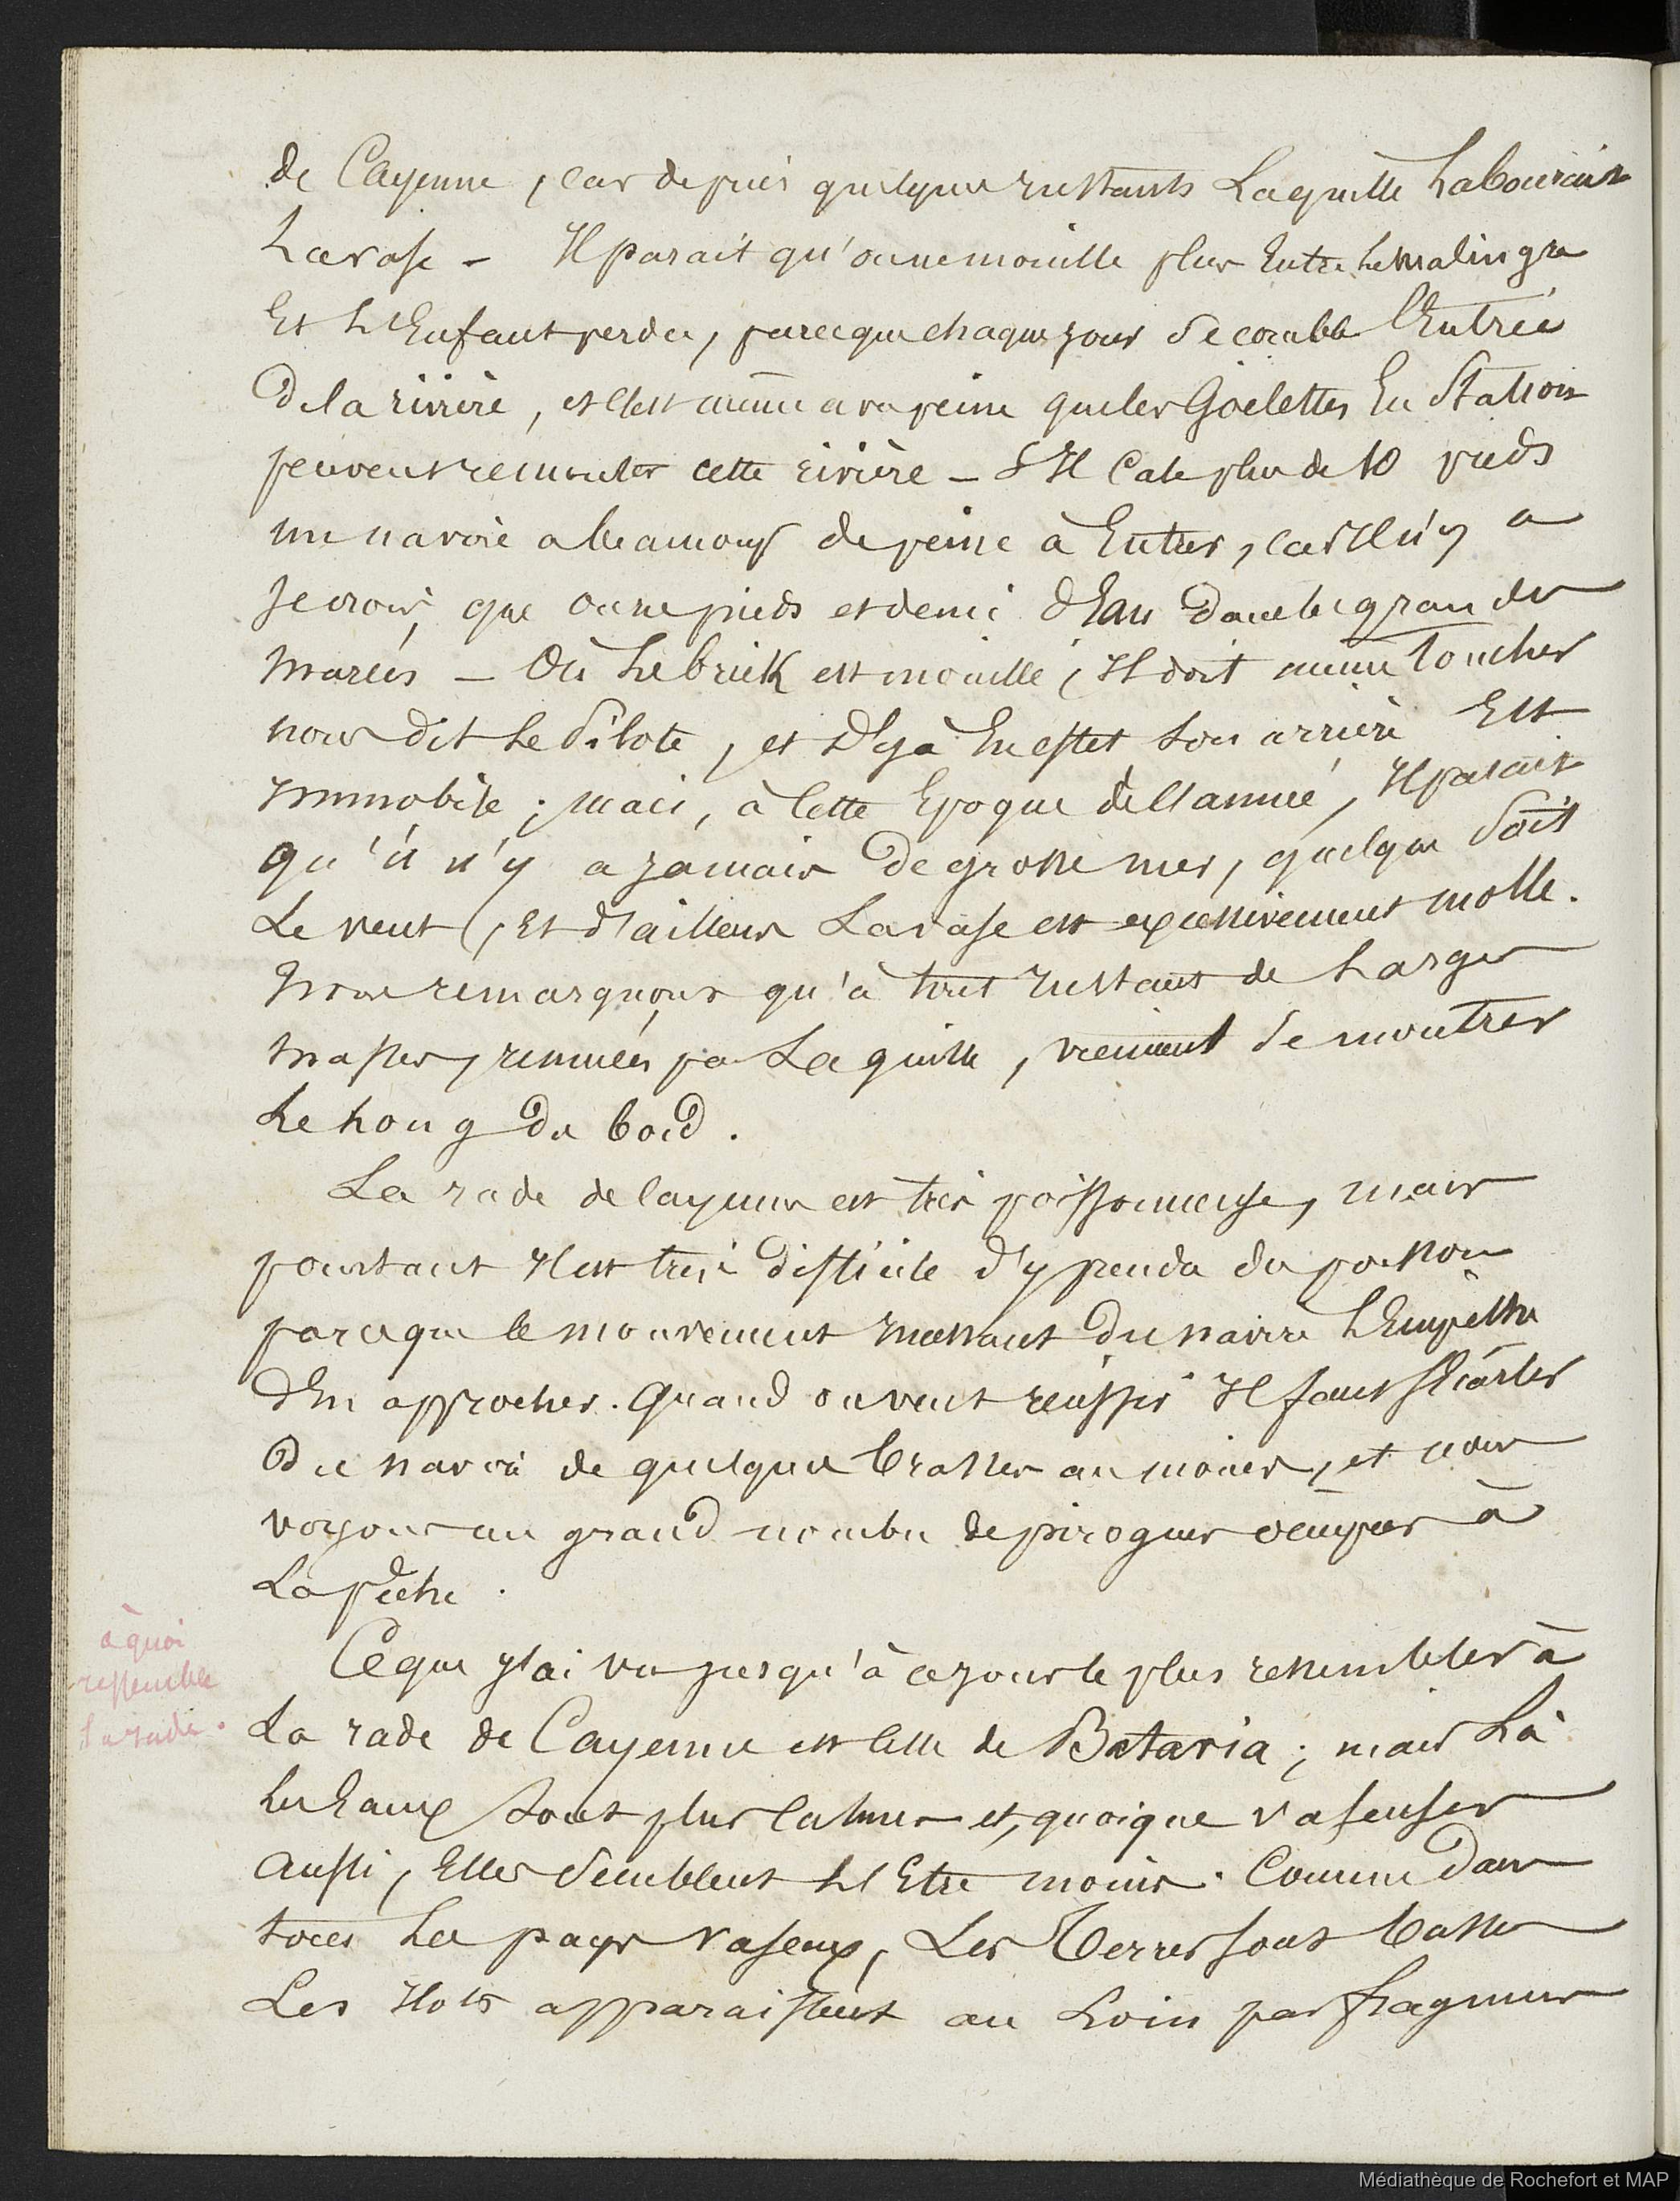 de Cayenne, car depuis quelques instants La quille Labourait
La vase - Il parait qu'on ne mouille plus Entre Le Malingre
Et L'Enfant perdu, parceque chaque jour se comble l'Entrée
De la rivière, et c'est même avec peine que les Goëlettes En Station
peuvent remonter cette rivière - S'Il Cale plus de 10 pieds
un navire a beaucoup de peine à Entrer, car Il n'y a
Je crois, que onze pieds et demi d'Eau Dans les grandes
Marées - Où Le brick est mouillé, Il doit même toucher
nous dit Le Pilote, et Déjà En effet son arrière Est
Immobile ; mais, à Cette Epoque de l'année, Il parait
qu'il n'y a jamais De grosse mer, quelque soit
Le vent, Et d'ailleurs La vase est excessivement molle.
Nous remarquons qu'à tout Instant de Larges
Masses, remuées par La quille, viennent se montrer
Le Long Du bord.
La rade de Cayenne est très poissonneuse, mais
pourtant Il est très Difficile d'y prendre du poisson
parceque le mouvement Incessant Du navire L'Empêche
D'En approcher. Quand on veut réussir Il faut s'Ecarter
Du navire de quelques brasses au moins, et nous
voyons un grand nombre de pirogues occupées à
La pêche.
à quoi
ressemble
La rade.
Ce que j'ai vu jusqu'à ce jour le plus ressembler à
La rade de Cayenne est Celle de Batavia ; mais Là
Les Eaux sont plus Calmes et, quoique vaseuses
aussi, Elles semblent L'Etre moins. Comme Dans
tous Les pays vaseux, Les Terres sont basses
Les Ilots apparaissent au Loin par fragmens
Médiathèque de Rochefort et MAP